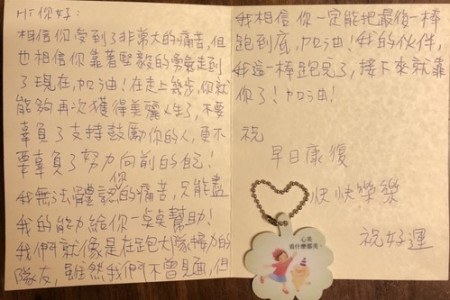 Hi 你好:
相信你受到了非常大的痛苦,但
也相信你靠著堅毅的勇氣走到
了現在,加油!在走上幾步,你就
能夠再次獲得美麗人生了,不要
辜負了支持鼓勵你的人,更不
要辜負了努力向前的自己!
我無法體認你的痛苦,只能盡
我的能力給你一點點幫助!
我們就像是在跑大隊接力的
隊友,雖然我們不曾見面,但
我相信你一定能把最後一棒
跑到底,加油!我的伙伴,
我這一棒跑完了,接下來就靠
你了!加油!
祝
早日康復
快快樂樂
祝好運
心美